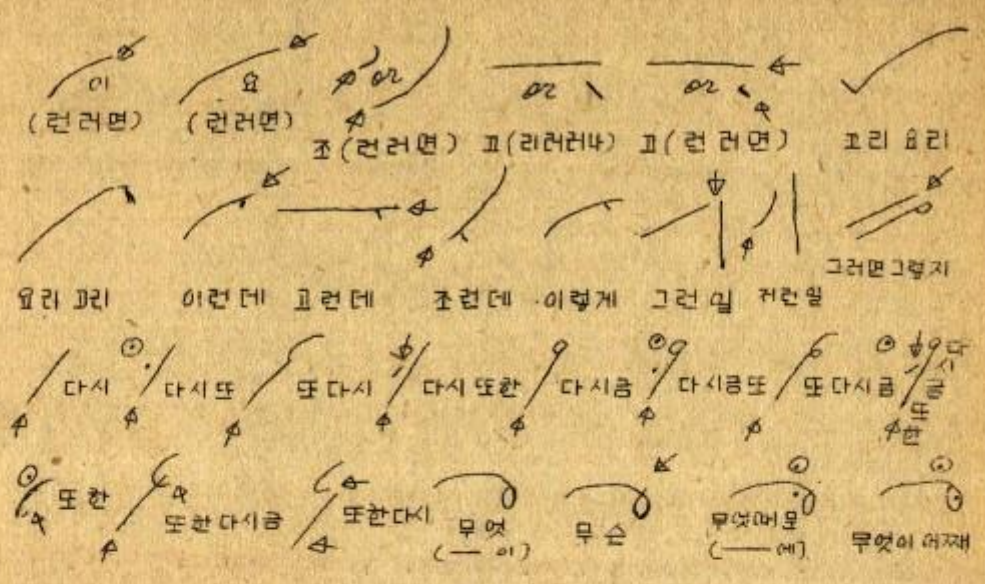 이 요 or or or
(런러면) (런러면) 조(런러면) 꼬(리러러나) 꼬(런러면) 꼬리 요리
요리 꼬리 이런데 고런데 조런데 이렇게 그런일 저런일 그러면그렇지
다시 다시또 또다시 다시또한 다시금 다시금또 또다시금 다시금또한
또한 또한다시금 또한다시 무엇 무슨 무엇때문 무엇이어째
(—이) (—에)